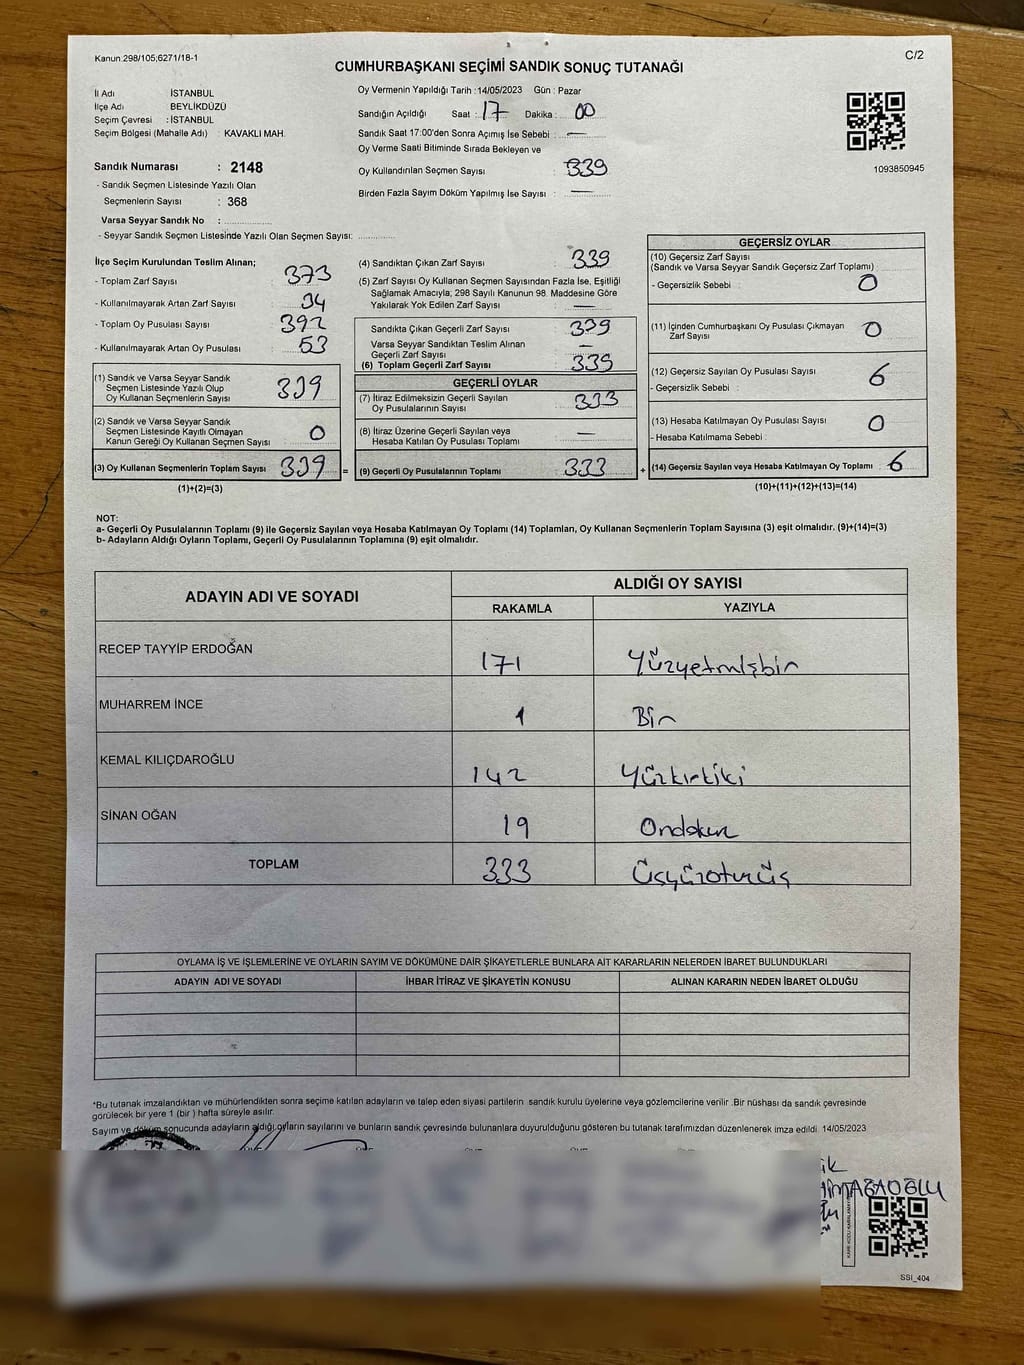 Kanun:298/105;6271/18-1
C/2
CUMHURBAŞKANI SEÇİMİ SANDIK SONUÇ TUTANAĞI
İl Adı İSTANBUL
İlçe Adı BEYLİKDÜZÜ
Seçim Çevresi : İSTANBUL
Seçim Bölgesi (Mahalle Adı) : KAVAKLI MAH.
Sandık Numarası : 2148
- Sandık Seçmen Listesinde Yazılı Olan
Seçmenlerin Sayısı : 368
Varsa Seyyar Sandık No :
- Seyyar Sandık Seçmen Listesinde Yazılı Olan Seçmen Sayısı:
Oy Vermenin Yapıldığı Tarih :14/05/2023 Gün : Pazar
Sandığın Açıldığı Saat : 17 Dakika : 00
Sandık Saat 17:00'den Sonra Açımış İse Sebebi : —
Oy Verme Saati Bitiminde Sırada Bekleyen ve
Oy Kullandırılan Seçmen Sayısı : 339
Birden Fazla Sayım Döküm Yapılmış İse Sayısı : —
1093850945
İlçe Seçim Kurulundan Teslim Alınan;
- Toplam Zarf Sayısı : 373
- Kullanılmayarak Artan Zarf Sayısı : 34
- Toplam Oy Pusulası Sayısı : 392
- Kullanılmayarak Artan Oy Pusulası : 53
(1) Sandık ve Varsa Seyyar Sandık
Seçmen Listesinde Yazılı Olup
Oy Kullanan Seçmenlerin Sayısı 339
(2) Sandık ve Varsa Seyyar Sandık
Seçmen Listesinde Kayıtlı Olmayan
Kanun Gereği Oy Kullanan Seçmen Sayısı 0
(3) Oy Kullanan Seçmenlerin Toplam Sayısı 339 =
(1)+(2)=(3)
(4) Sandıktan Çıkan Zarf Sayısı : 339
(5) Zarf Sayısı Oy Kullanan Seçmen Sayısından Fazla İse, Eşitliği
Sağlamak Amacıyla; 298 Sayılı Kanunun 98. Maddesine Göre
Yakılarak Yok Edilen Zarf Sayısı : —
Sandıkta Çıkan Geçerli Zarf Sayısı : 339
Varsa Seyyar Sandıktan Teslim Alınan
Geçerli Zarf Sayısı : —
(6) Toplam Geçerli Zarf Sayısı : 339
GEÇERLİ OYLAR
(7) İtiraz Edilmeksizin Geçerli Sayılan
Oy Pusulalarının Sayısı : 333
(8) İtiraz Üzerine Geçerli Sayılan veya
Hesaba Katılan Oy Pusulası Toplamı : —
(9) Geçerli Oy Pusulalarının Toplamı : 333 +
GEÇERSİZ OYLAR
(10) Geçersiz Zarf Sayısı
(Sandık ve Varsa Seyyar Sandık Geçersiz Zarf Toplamı)
- Geçersizlik Sebebi : 0
(11) İçinden Cumhurbaşkanı Oy Pusulası Çıkmayan
Zarf Sayısı : 0
(12) Geçersiz Sayılan Oy Pusulası Sayısı : 6
- Geçersizlik Sebebi :
(13) Hesaba Katılmayan Oy Pusulası Sayısı : 0
- Hesaba Katılmama Sebebi :
(14) Geçersiz Sayılan veya Hesaba Katılmayan Oy Toplamı : 6
(10)+(11)+(12)+(13)=(14)
NOT:
a- Geçerli Oy Pusulalarının Toplamı (9) ile Geçersiz Sayılan veya Hesaba Katılmayan Oy Toplamı (14) Toplamları, Oy Kullanan Seçmenlerin Toplam Sayısına (3) eşit olmalıdır. (9)+(14)=(3)
b- Adayların Aldığı Oyların Toplamı, Geçerli Oy Pusulalarının Toplamına (9) eşit olmalıdır.
ADAYIN ADI VE SOYADI
ALDIĞI OY SAYISI
RAKAMLA YAZIYLA
RECEP TAYYİP ERDOĞAN 171 Yüzyetmişbir
MUHARREM İNCE 1 Bir
KEMAL KILIÇDAROĞLU 142 Yüzkırkiki
SİNAN OĞAN 19 Ondokuz
TOPLAM 333 Üçyüzotuzüç
OYLAMA İŞ VE İŞLEMLERİNE VE OYLARIN SAYIM VE DÖKÜMÜNE DAİR ŞİKAYETLERLE BUNLARA AİT KARARLARIN NELERDEN İBARET BULUNDUKLARI
ADAYIN ADI VE SOYADI İHBAR İTİRAZ VE ŞİKAYETİN KONUSU ALINAN KARARIN NEDEN İBARET OLDUĞU
*Bu tutanak imzalandıktan ve mühürlendikten sonra seçime katılan adayların ve talep eden siyasi partilerin sandık kurulu üyelerine veya gözlemcilerine verilir .Bir nüshası da sandık çevresinde
görülecek bir yere 1 (bir ) hafta süreyle asılır.
Sayım ve döküm sonucunda adayların aldığı oyların sayılarını ve bunların sandık çevresinde bulunanlara duyurulduğunu gösteren bu tutanak tarafımızdan düzenlenerek imza edildi. 14/05/2023
SSI_404